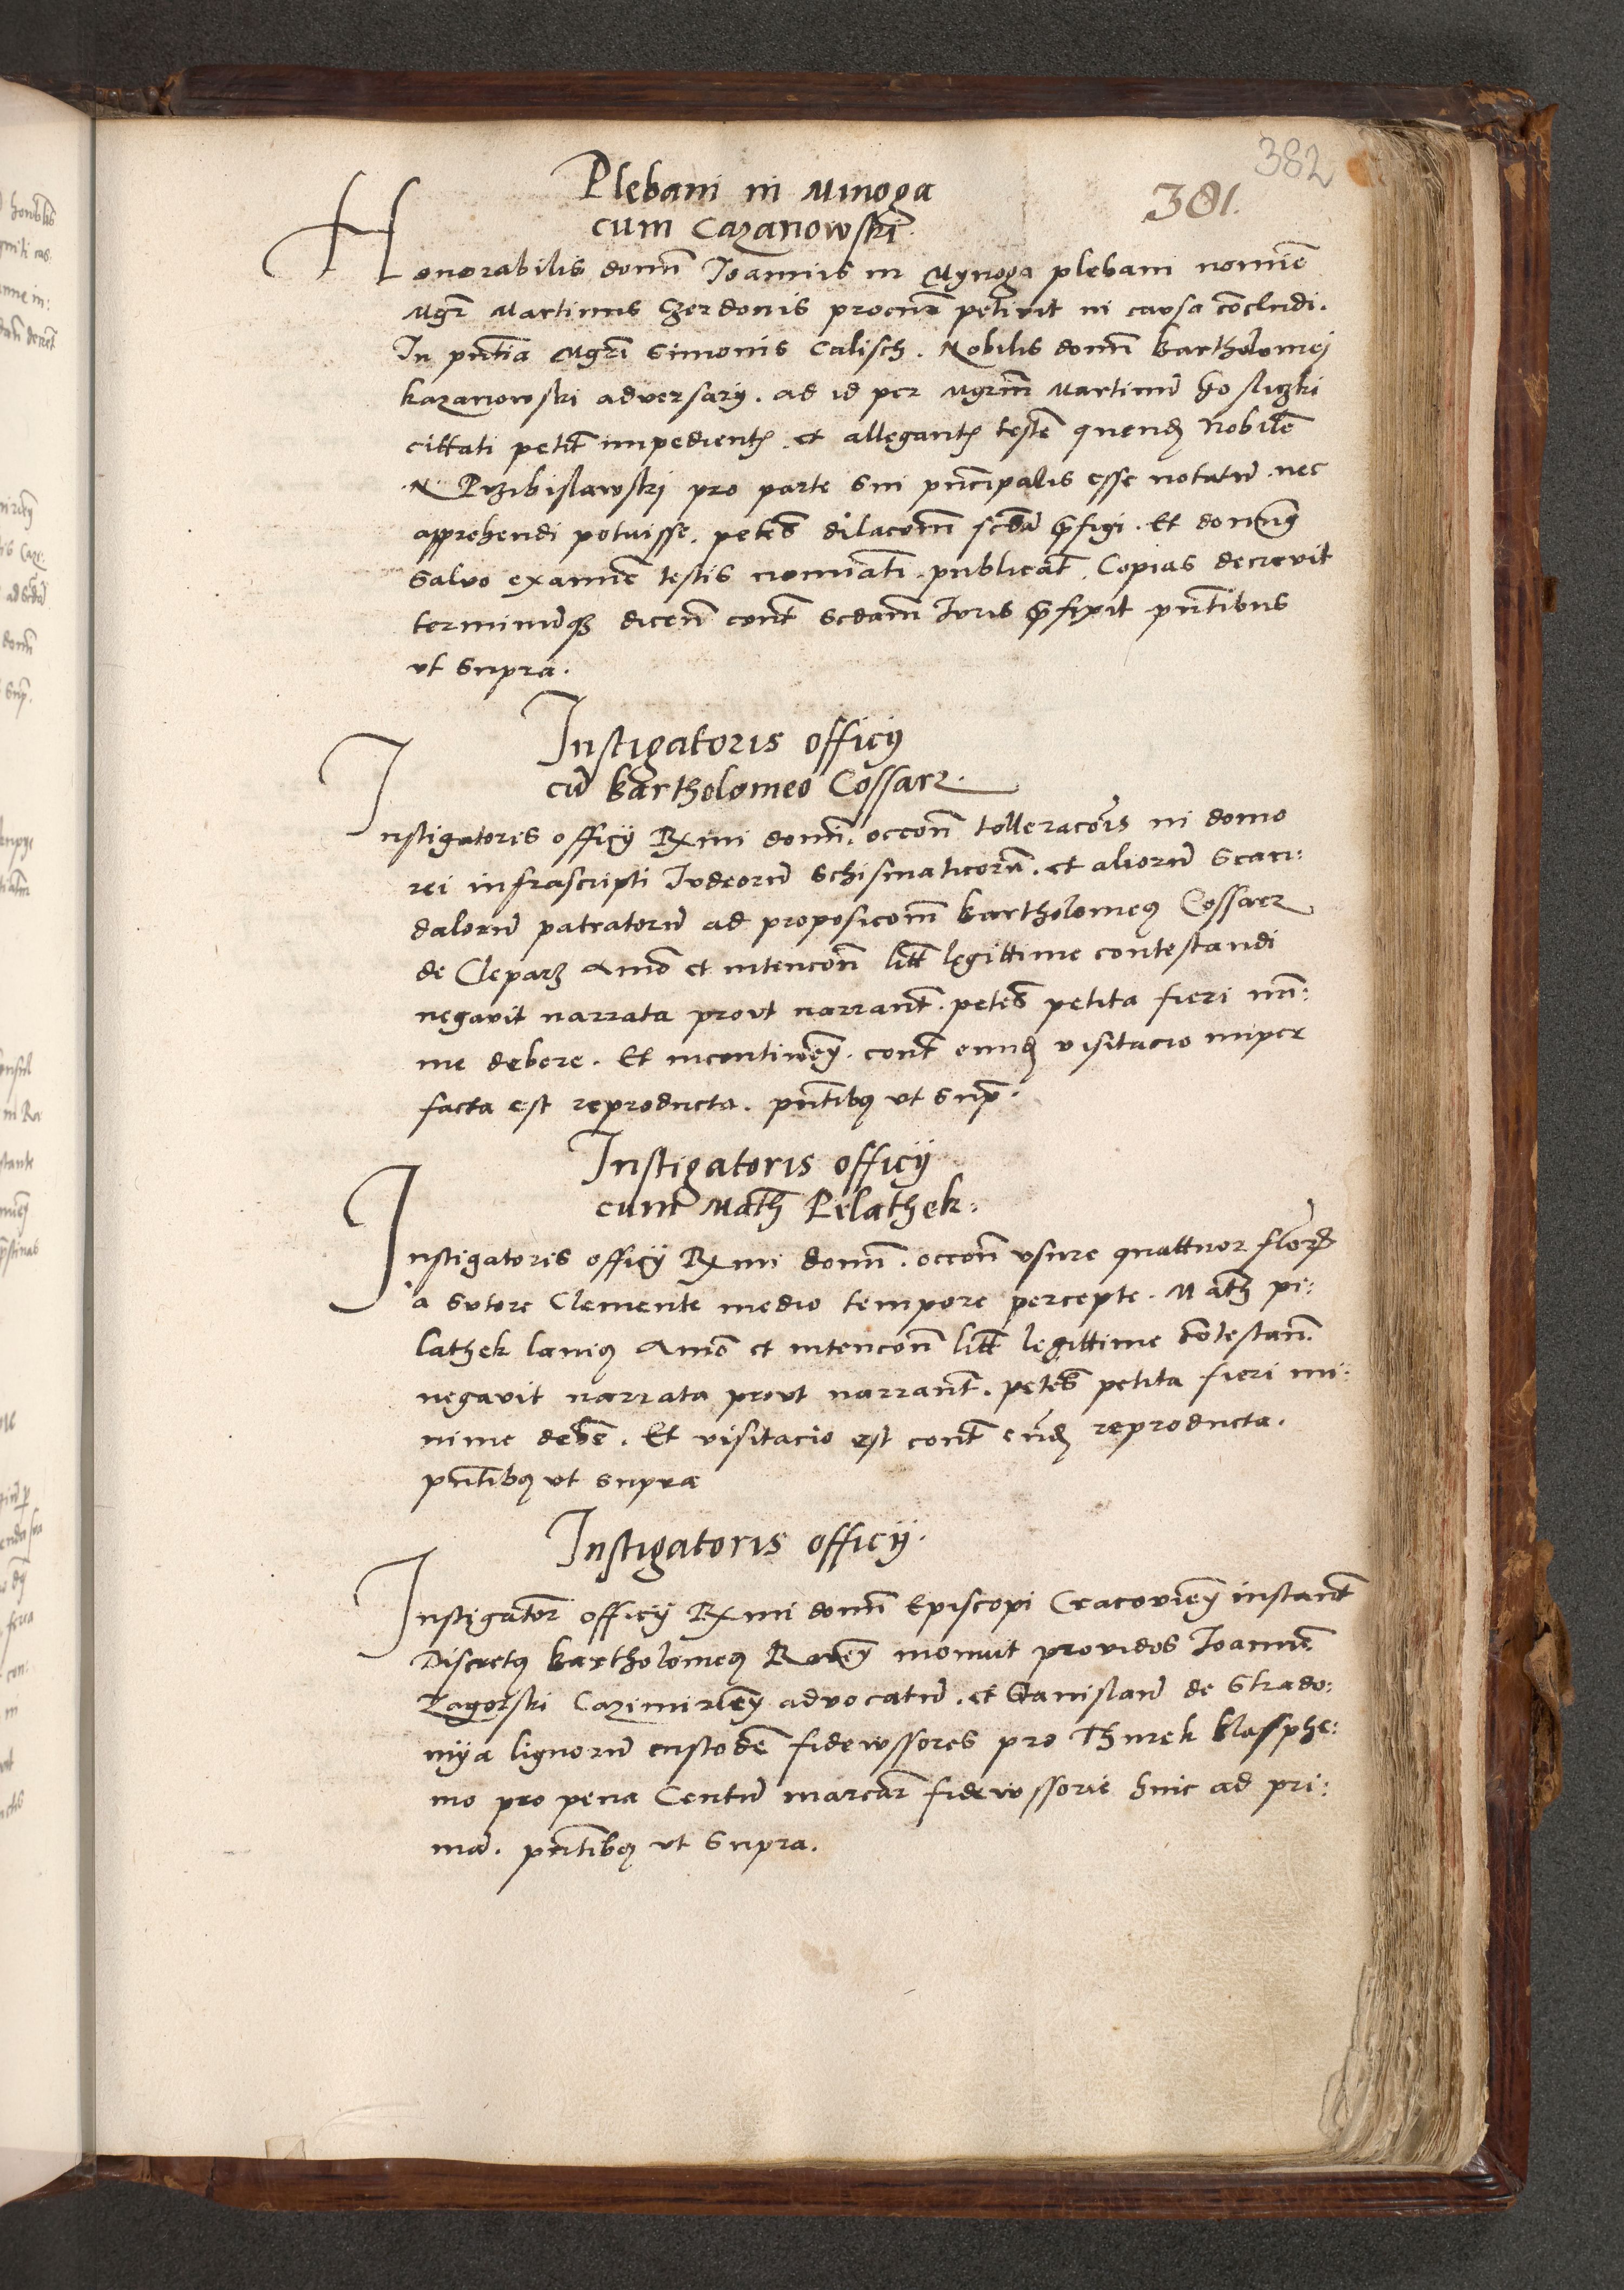 382
381.
Plebani in Mnoga
cum Cazanowski
Honorabilis domĩ Joannis in Mynoga plebani nomiẽ
Mgr̃ Martinus Czerdonis procur̃ petivit in causa cõcludi.
In pñtia Mgrĩ Simonis Calisch. Nobilis domĩ Bartholomej
Kazanowski adversarÿ. ad id per Mgrm̃ Martinũ
cittati petit̃ impedient̃. et allegant̃ testẽ quend̃ Nobilẽ
N Przibislawskj pro parte sui pñcipalis esse notatũ. nec
apprehendi potuisse. petes̃ dilacom̃ scdã p̃figi. Et dom̃
salvo examiẽ testis nomiati. publicat̃. Copias decrevit
terminũq; diceñ cont̃ scdam̃ Juris p̃fixit pñtibus
ut supra.
Instigatoris officÿ
cũ Bartholomeo Cossarz.
Instigatoris officÿ Rx̃mi domĩ. occoñ tolleracõis in domo
rei infrascripti Judeorũ schismaticorũ. et aliorũ scan:
dalorũ patratorũ ad proposicom̃ Bartholomeus Cossarz
de Cleparz Animo et intencoñ litt̃ legittime contestandi
negavit narrata prout narrant̃. petes̃ petita fieri mĩ:
me debere. Et incontinen̄. cont̃ eund̃ visitacio nuper
facta est reproducta. pñtibus ut sup̃.
Instigatoris officÿ
cum Math̃ Pilathek.
Instigatoris officÿ Rx̃mi domĩ. occoñ usure quattuor flor̃
a sutore Clemente medio tempore percepte. Math̃ pi:
lathek lanius Animo et intencoñ litt̃ legittime cõtestan̄.
negavit narrata prout narrant̃. petes̃ petita fieri mi:
nime debẽ. Et visitacio est cont̃ eũd̃ reproducta.
pñtibus ut supra
Instigatoris officÿ.
Instigator̃ officÿ Rx̃mi domĩ Episcopi Cracovien̄ instant̃
Discretus Bartholomeus monuit providos Joannẽ
Zagorski Cazimirien̄ advocatũ. et Stanislaũ de Strado:
mÿa lignorũ custodẽ fideiussores pro Thurek blasphe:
mo pro pena Centũ marcar̃ fideiussorie hinc ad pri:
mã. pñtibus ut supra.